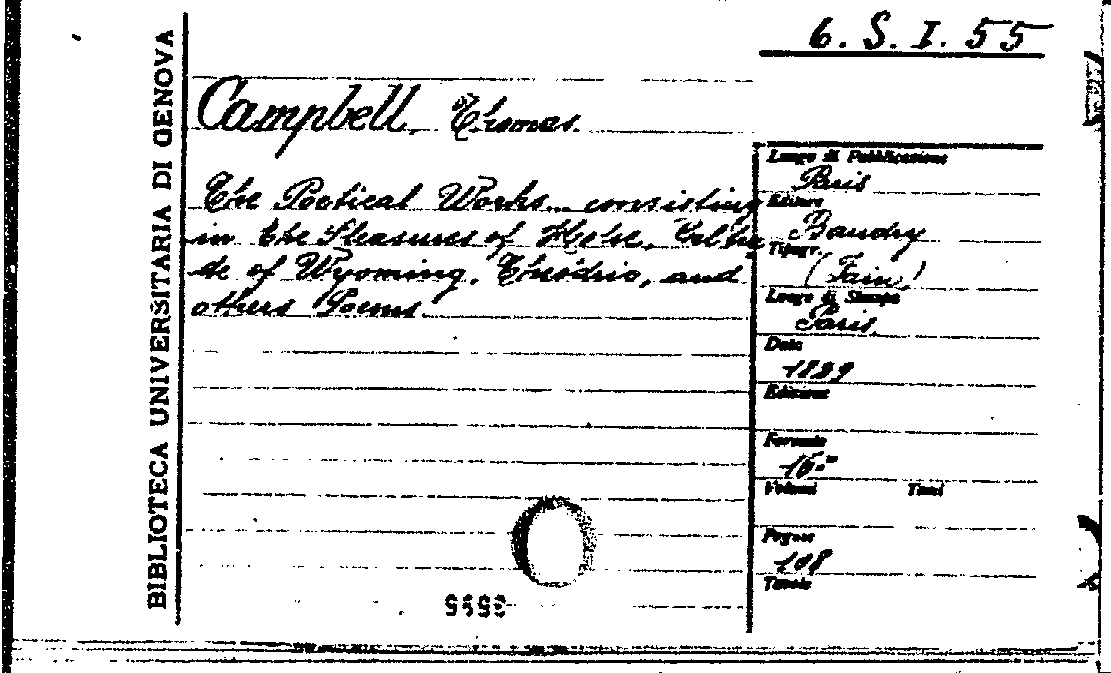 6. S. I. 55
BIBLIOTECA UNIVERSITARIA DI GENOVA
Campbell, Thomas.
The Poetical Works... consisting
in the Pleasures of Hope, Gertru
de of Wyoming, and
others Poems.
Luogo di Pubblicazione
Paris
Editore
Baudry
Tipogr.
(Fain)
Luogo di Stampa
Paris.
Data
1829
Edizione
Formato
16°
Volumi Tomi
Pagine
108
Tavole